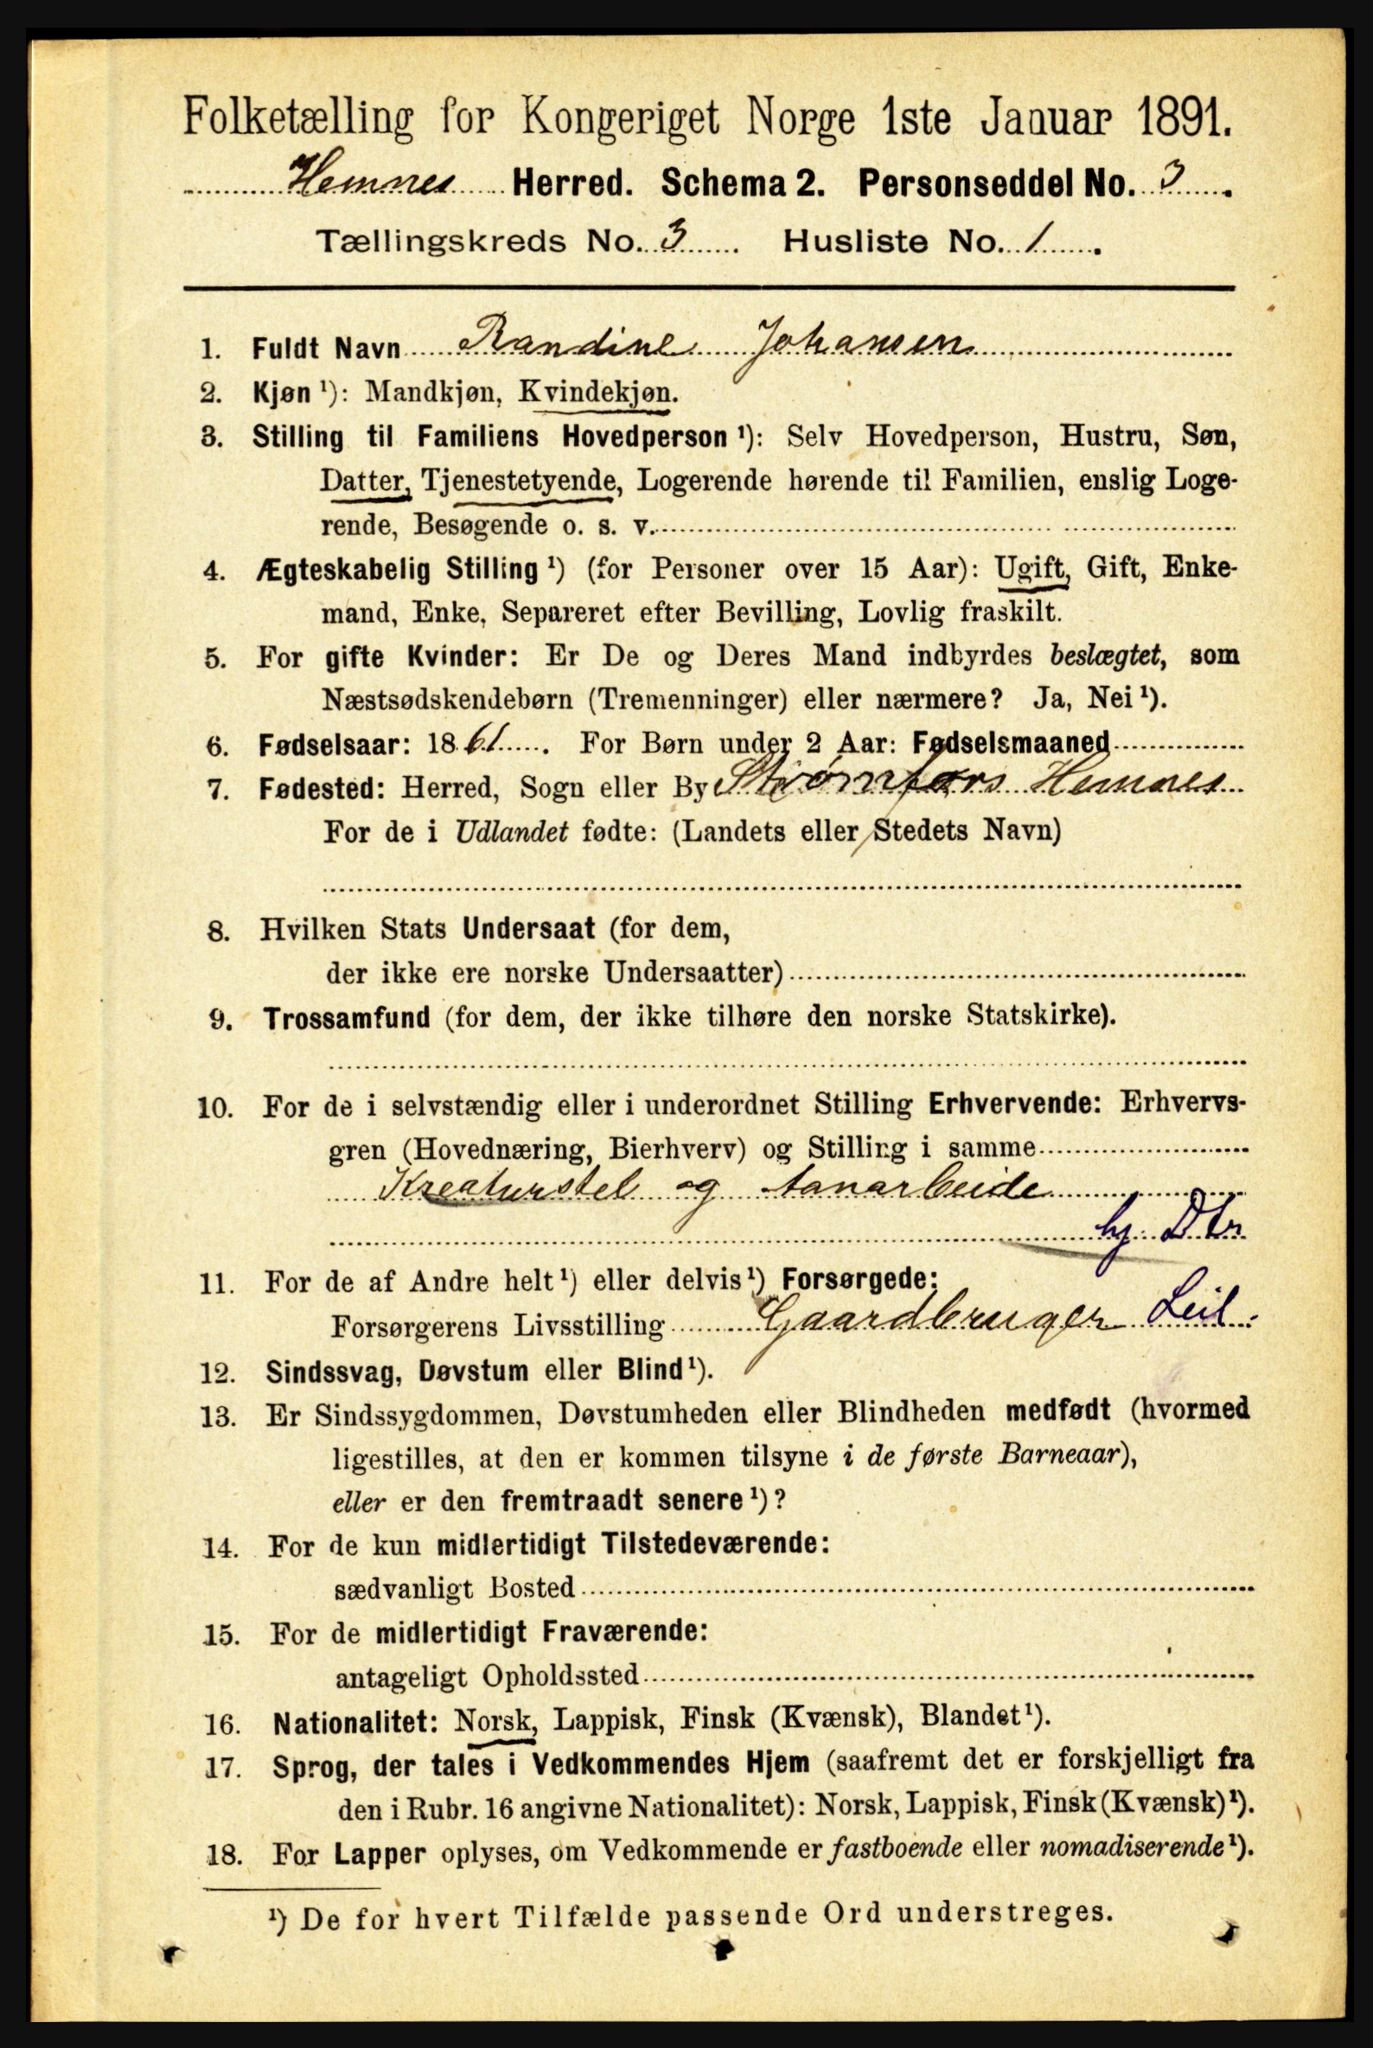 Folketælling for Kongeriget Norge 1ste Januar 1891.
Hemnes Herred. Schema 2. Personseddel No. 3.
Tællingskreds No. 3. Husliste No. 1.
1. Fuldt Navn Randine Johansen
2. Kjøn ¹): Mandkjøn, Kvindekjøn.
3. Stilling til Familiens Hovedperson ¹): Selv Hovedperson, Hustru, Søn,
Datter, Tjenestetyende, Logerende hørende til Familien, enslig Loge-
rende, Besøgende o. s. v.
4. Ægteskabelig Stilling ¹) (for Personer over 15 Aar): Ugift, Gift, Enke-
mand, Enke, Separeret efter Bevilling, Lovlig fraskilt.
5. For gifte Kvinder: Er De og Deres Mand indbyrdes beslægtet, som
Næstsødskendebørn (Tremenninger) eller nærmere? Ja, Nei ¹).
6. Fødselsaar: 1861. For Børn under 2 Aar: Fødselsmaaned
7. Fødested: Herred, Sogn eller By Strømfors Hemnes
For de i Udlandet fødte: (Landets eller Stedets Navn)
8. Hvilken Stats Undersaat (for dem,
der ikke ere norske Undersaatter)
9. Trossamfund (for dem, der ikke tilhøre den norske Statskirke).
10. For de i selvstændig eller i underordnet Stilling Erhvervende: Erhvervs-
gren (Hovednæring, Bierhverv) og Stilling i samme
Kreaturstel og Aanarbeide
hj. Dtr
11. For de af Andre helt ¹) eller delvis ¹) Forsørgede:
Forsørgerens Livsstilling Gaardbruger Leil.
12. Sindssvag, Døvstum eller Blind ¹).
13. Er Sindssygdommen, Døvstumheden eller Blindheden medfødt (hvormed
ligestilles, at den er kommen tilsyne i de første Barneaar),
eller er den fremtraadt senere ¹)?
14. For de kun midlertidigt Tilstedeværende:
sædvanligt Bosted
15. For de midlertidigt Fraværende:
antageligt Opholdssted
16. Nationalitet: Norsk, Lappisk, Finsk (Kvænsk), Blandet ¹).
17. Sprog, der tales i Vedkommendes Hjem (saafremt det er forskjelligt fra
den i Rubr. 16 angivne Nationalitet): Norsk, Lappisk, Finsk (Kvænsk) ¹).
18. For Lapper oplyses, om Vedkommende er fastboende eller nomadiserende ¹).
¹) De for hvert Tilfælde passende Ord understreges.